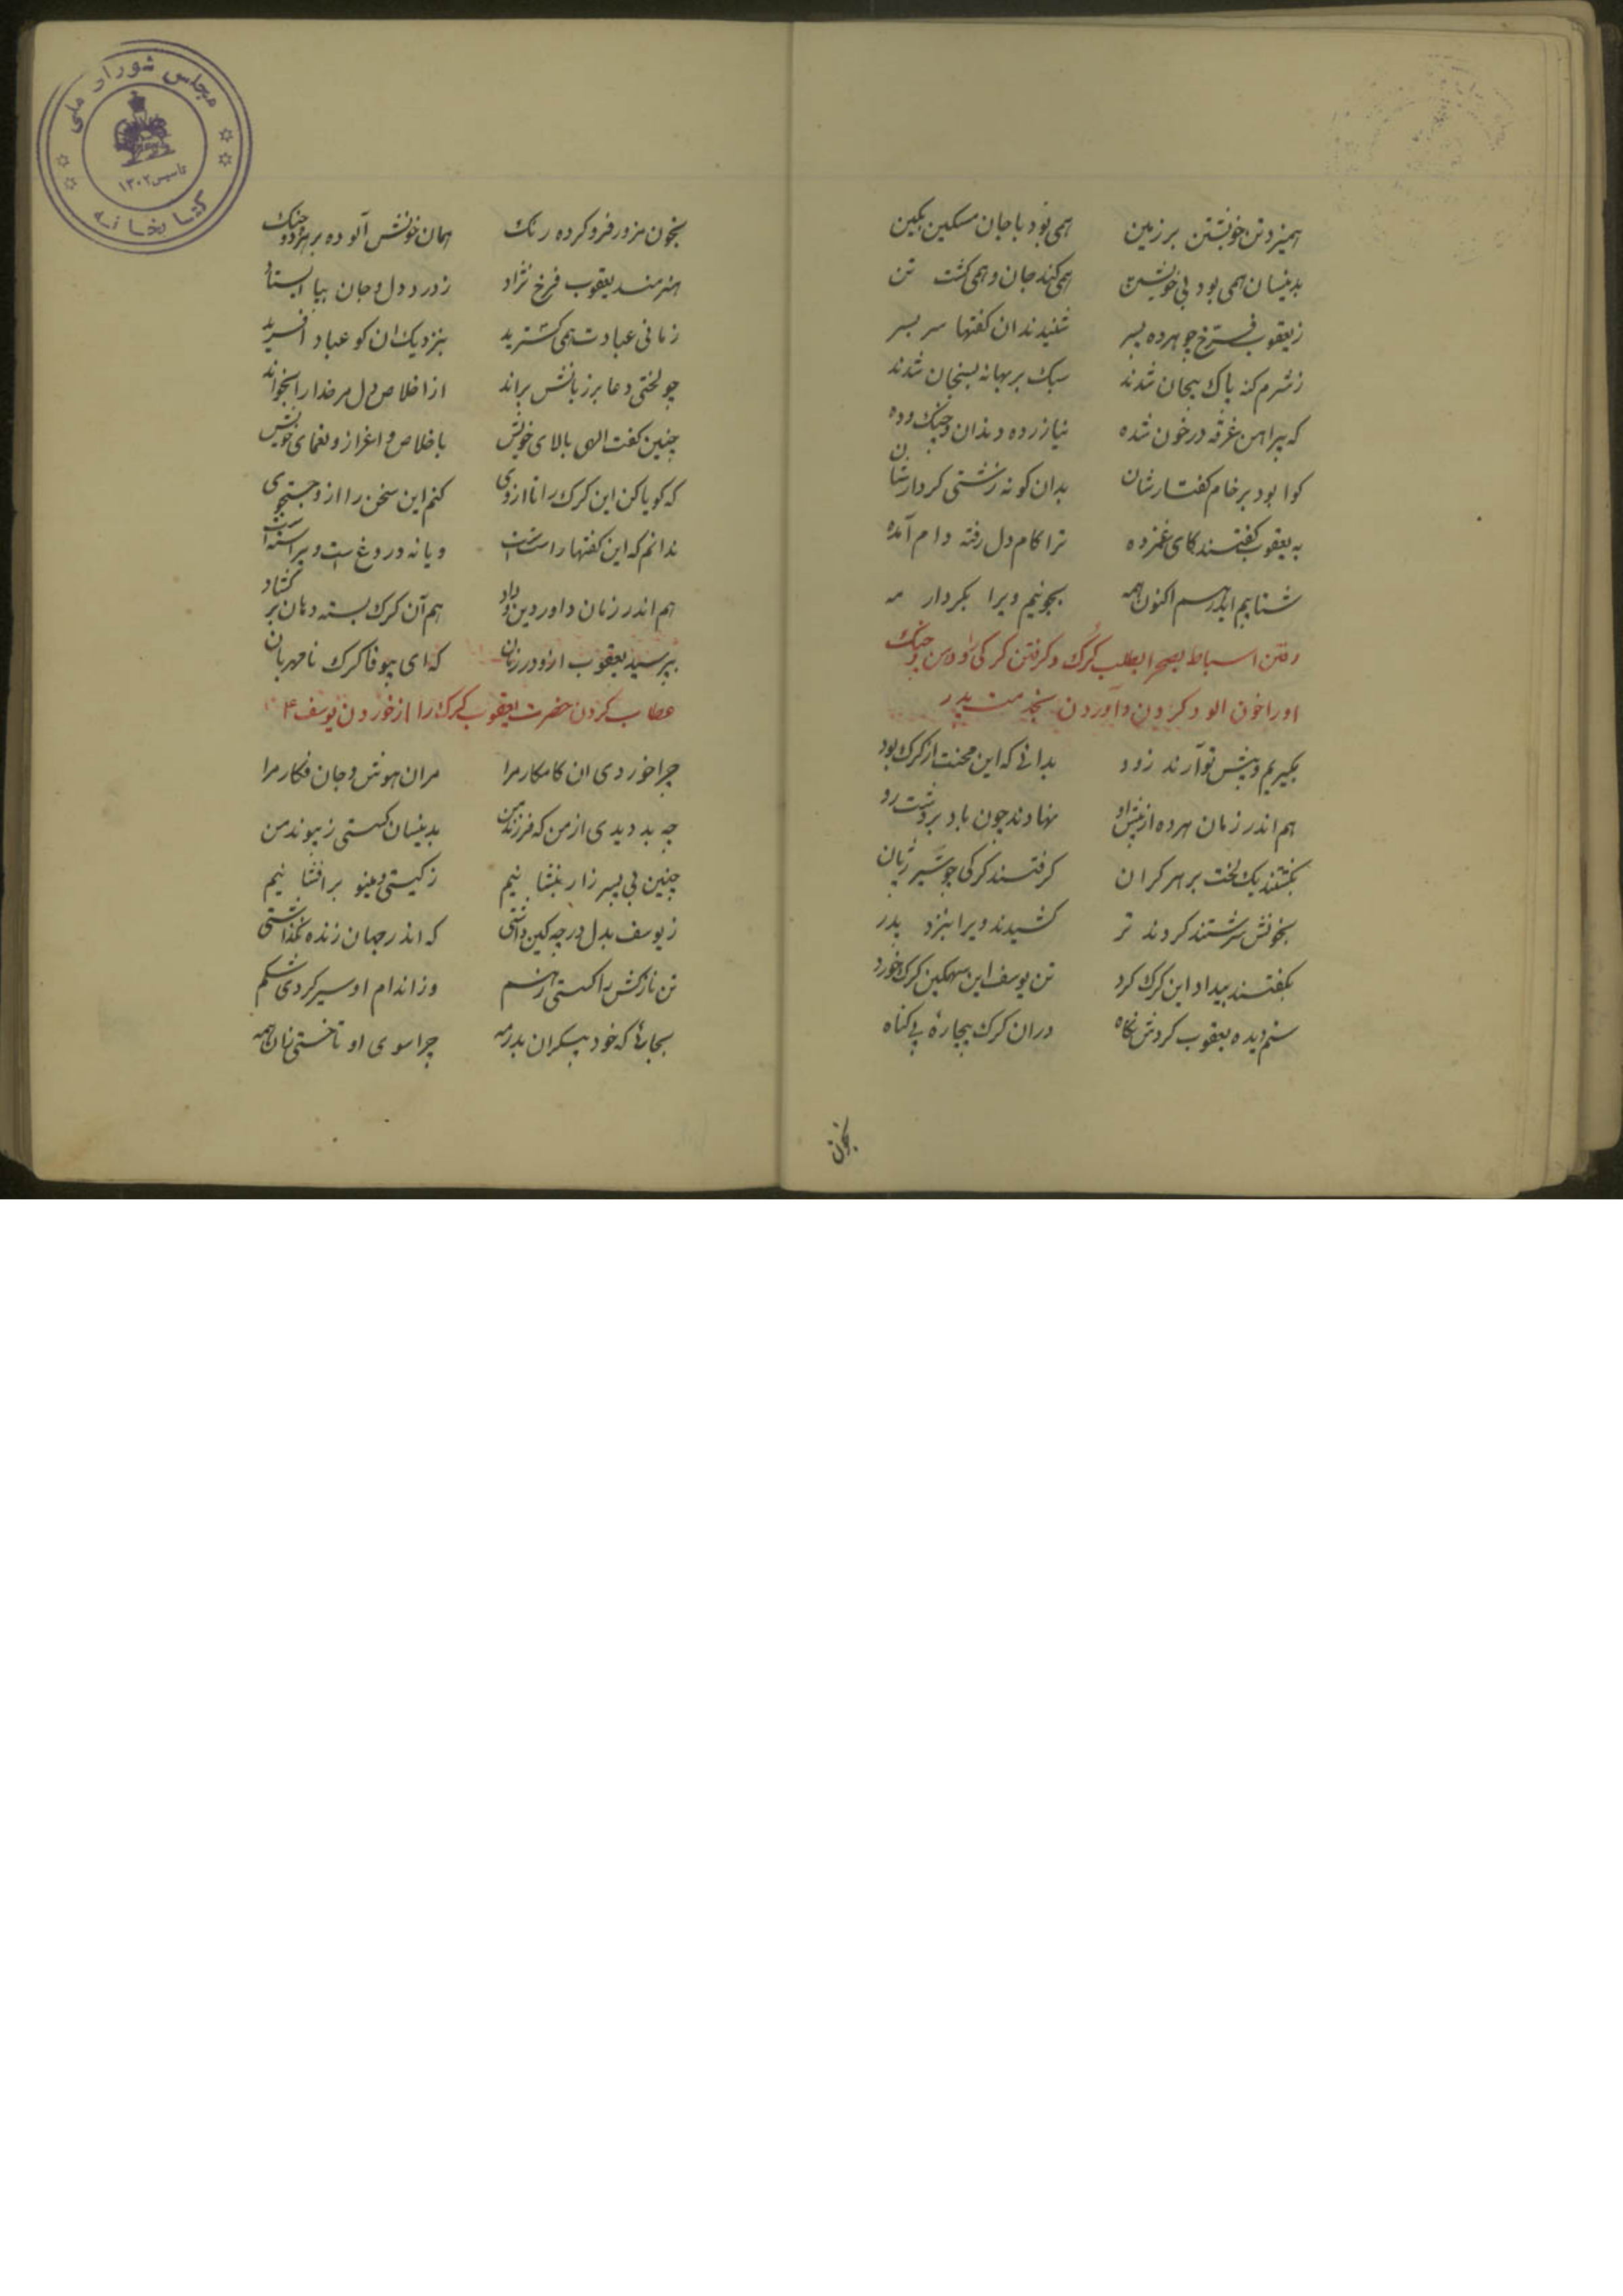 همیزد تن خویشتن بر زمین همی بود با جان مسکین بکین
بدینسان همی بود بی خویشتن همی کند جان و همی کشت تن
ز یعقوب فرخ چو هر ده پسر شنیدند ان کفتها سر بسر
ز شرم کنه پاک بیجان شدند سبک بر بهانه بسنجان شدند
که پیراهن غرقه در خون شده نیازرده دندان و چنک دده
کوا بود بر خام کفتارشان بدان کونه زشتی کردارشان
به یعقوب کفتند کای غمزده ترا کام دل رفته دام آمده
شتابیم اندر رسم اکنون همه بجوئیم ویرا بکردار مه
رفتن اسباط بصحرا بطلب کرک و کرفتن کرکی را و دهن و چنک
او را خون الود کردن و آوردن بخدمت پدر
بکیریم و پیش تو آرند زود بدانی که این محنت از کرک بود
هم اندر زمان هر ده از پیش او نهادند چون باد بر دشت رو
بکشتند یک لخت بر هر کران کرفتند کرکی چو شیر ژیان
بخونش سرشتند کردند تر کشیدند ویرا بنزد پدر
بکفتند بیداد این کرک کرد تن یوسف این سهمکین کرک خورد
ستمدیده یعقوب کردش نکاه دران کرک بیچارهٔ بی کناه
بخون
بخون مزور فرو کرده رنک همان خونش آلوده بر هر دو چنک
هنرمند یعقوب فرخ نژاد ز درد دل و جان بپا ایستاد
زمانی عبادت همی کسترید بنزدیک ان کو عباد افرید
چو لختی دعا بر زبانش براند از اخلاص دل مر خدا را بخواند
چنین کفت الهی بالای خویش باخلاص و اعزاز و نعمای خویش
که کویا کن این کرک را تا ازوی کنم این سخن را ازو جستجوی
ندانم که این کفتها راستست و یا نه دروغ است و پیراستست
هم اندر زمان داور دین و داد هم آن کرک بسته دهان بر کشاد
بپرسید یعقوب ازو در زمان که ای بیوفا کرک نامهربان
عطاب کردن حضرت یعقوب کرک را از خوردن یوسف ع
چرا خوردی ان کامکار مرا مران هوش و جان فکار مرا
چه بد دیدی از من که فرزند من بدینسان کستی ز پیوند من
چنین بی پسر زار بنشانیم ز کیتی و مینو برافشانیم
ز یوسف بدل در چه کین داشتی که اندر جهان زنده نکذاشتی
تن نازکش را کستی ز هم وز اندام او سیر کردی شکم
بجائی که خود پیکران بد رمه چرا سوی او تاختی زان همه
مجلس شورای ملی
تاسیس ۱۳۰۲
کتابخانه